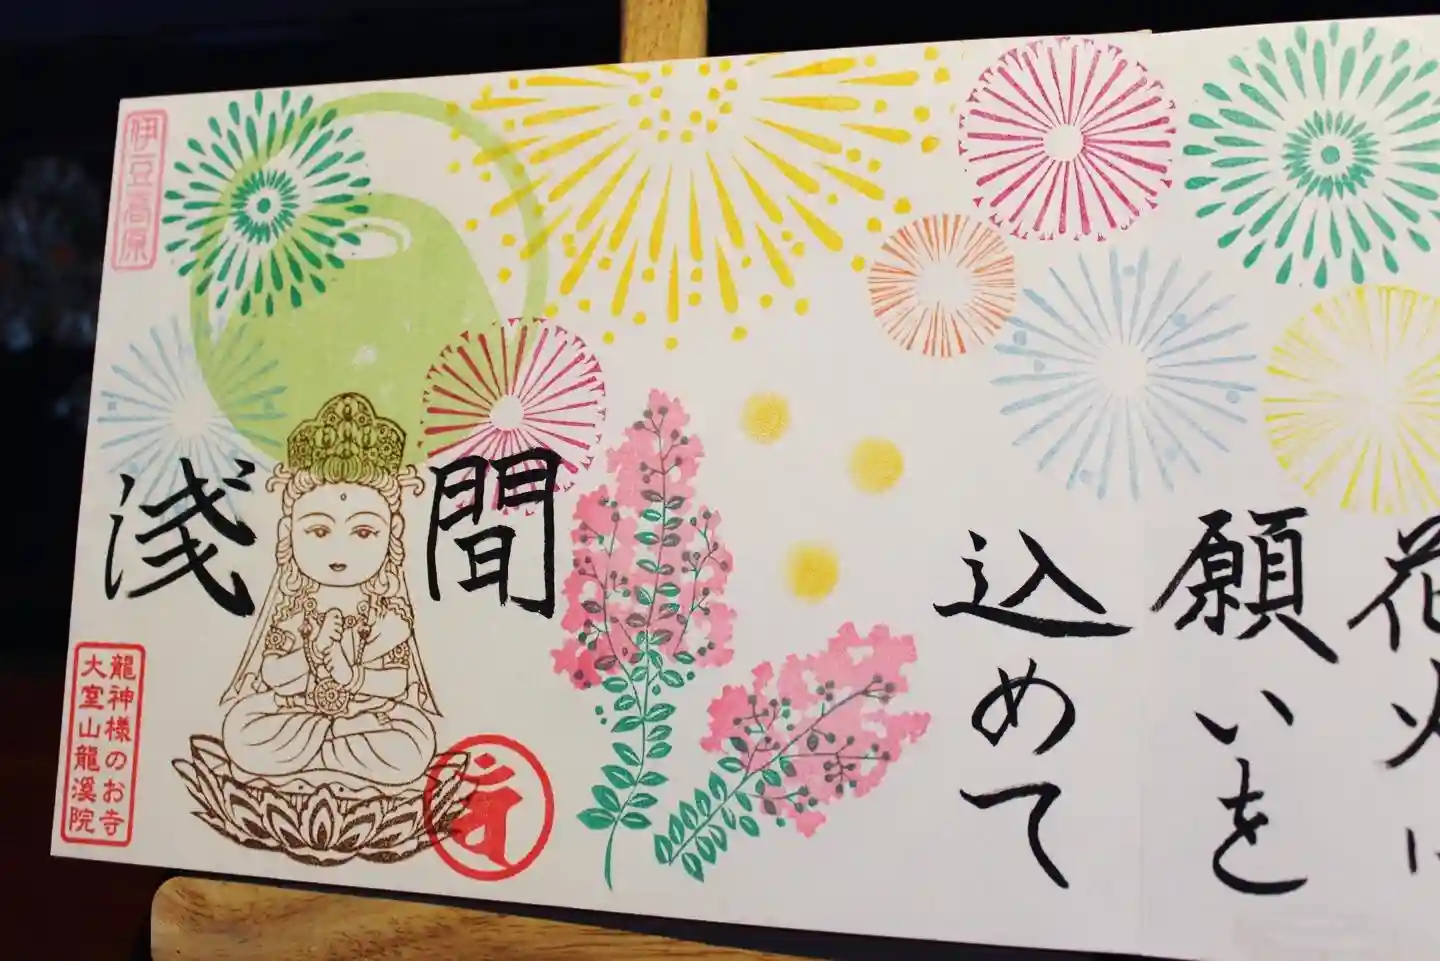 花火に
願いを
込めて
浅間
伊豆高原
龍神様のお寺
大室山龍溪院